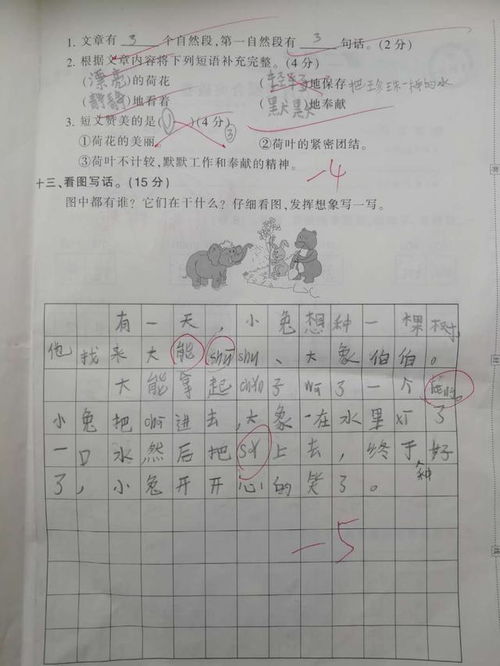 1. 文章有 3 个自然段,第一自然段有 3 句话。(2分)
2. 根据文章内容将下列短语补充完整。(4分)
(漂亮)的荷花 (轻轻)地保存把珍珠一样的水
(静静)地看着 (黑犬黑犬)地奉献
3. 短文赞美的是(①)(4分)
③
①荷花的美丽。 ②荷叶的紧密团结。
③荷叶不计较,默默工作和奉献的精神。
-4
十三、看图写话。(15分)
图中都有谁?它们在干什么?仔细看图,发挥想象写一写。
有一天,小兔想种一棵树,
他找来大能shūshu、大象伯伯。
大能拿起 子 了一个
小兔把 进去,大象在水里 了
一口水然后把 上去,终于种好
了,小兔开开心的笑了。
-5